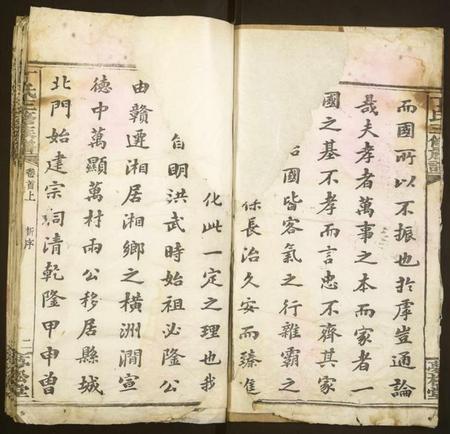 而國所以不振也於虖豈通論
哉夫孝者萬事之本而家者一
國之基不孝而言忠不齊其家
國皆客氣之行雜霸之
保長治久安而臻進
化此一定之理也我
自明洪武時始祖必隆公
由贛遷湘居湘鄉之橫洲澗宣
德中萬顯萬村兩公移居縣城
北門始建宗祠清乾隆甲申曾
氏三修族譜
卷首上
新序
二